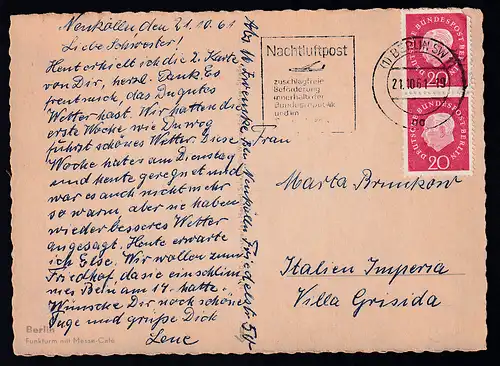 Neukölln den 21.10.61
Liebe Schwester!
Heut erhielt ich die 2. Karte
von Dir, herzl. Dank. Es
freut mich, das Du gutes
Wetter hast. Wir hatten die
erste Woche wie Du weg
fuhrst schönes Wetter. Diese
Woche hatte am Dienstag
und heute geregnet und
war es auch nicht mehr
so warm, aber sie haben
wieder besseres Wetter
angesagt. Heute erwarte
ich Else. Wir wollen zum
Friedhof da sie ein schlim-
mes Bein am 14. hatte.
Wünsche Dir noch schöne
Tage und grüße Dich
Lene
Berlin
Funkturm mit Messe-Café
Abs. Neukölln
Nachtluftpost
zuschlagfreie
Beförderung
innerhalb der
Bundesrepublik
und im
(1) BERLIN SW
21.10.61-19
DEUTSCHE BUNDESPOST BERLIN
20
DEUTSCHE BUNDESPOST BERLIN
20
Frau
Marta Brunkow
Italien Imperia
Villa Grisida